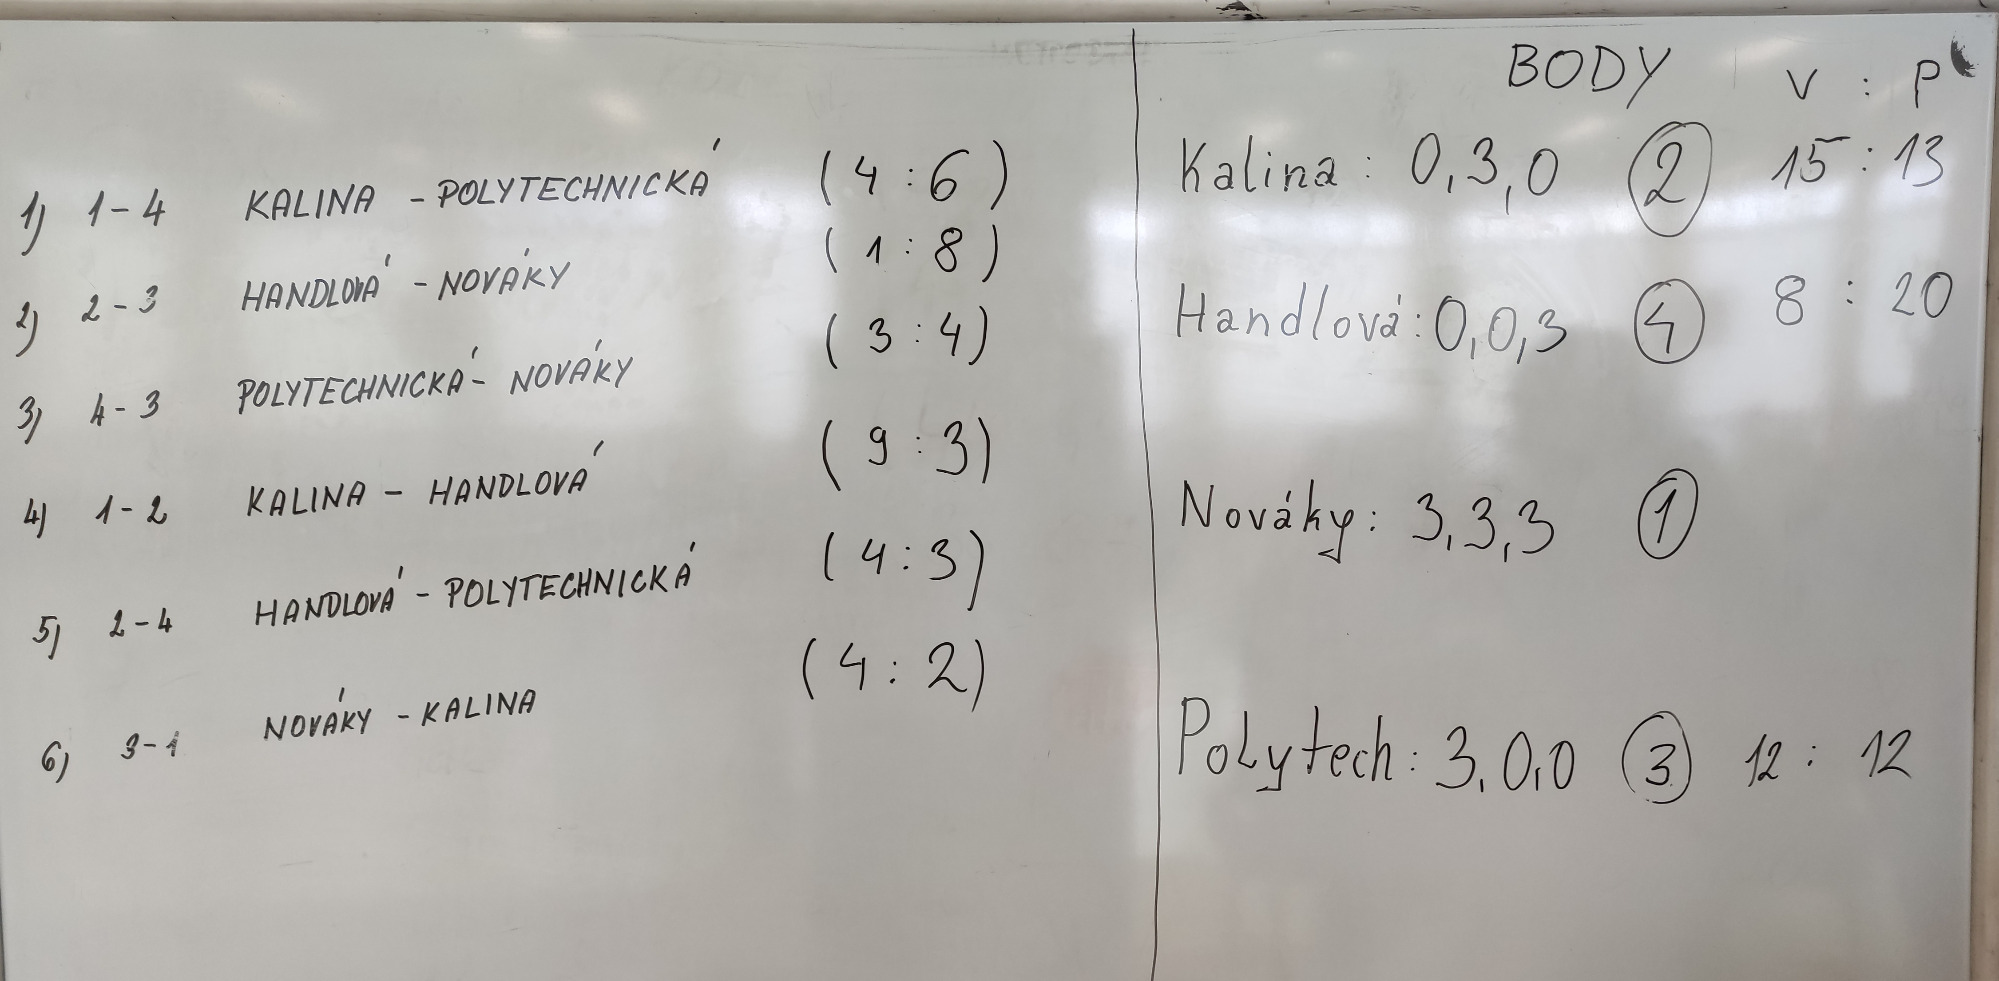 1) 1-4 KALINA - POLYTECHNICKÁ (4:6)
2) 2-3 HANDLOVÁ - NOVÁKY (1:8)
3) 4-3 POLYTECHNICKÁ - NOVÁKY (3:4)
4) 1-2 KALINA - HANDLOVÁ (9:3)
5) 2-4 HANDLOVÁ - POLYTECHNICKÁ (4:3)
6) 3-1 NOVÁKY - KALINA (4:2)
BODY V : P
Kalina: 0,3,0 2 15:13
Handlová: 0,0,3 4 8:20
Nováky: 3,3,3 1
Polytech: 3,0,0 3 12:12